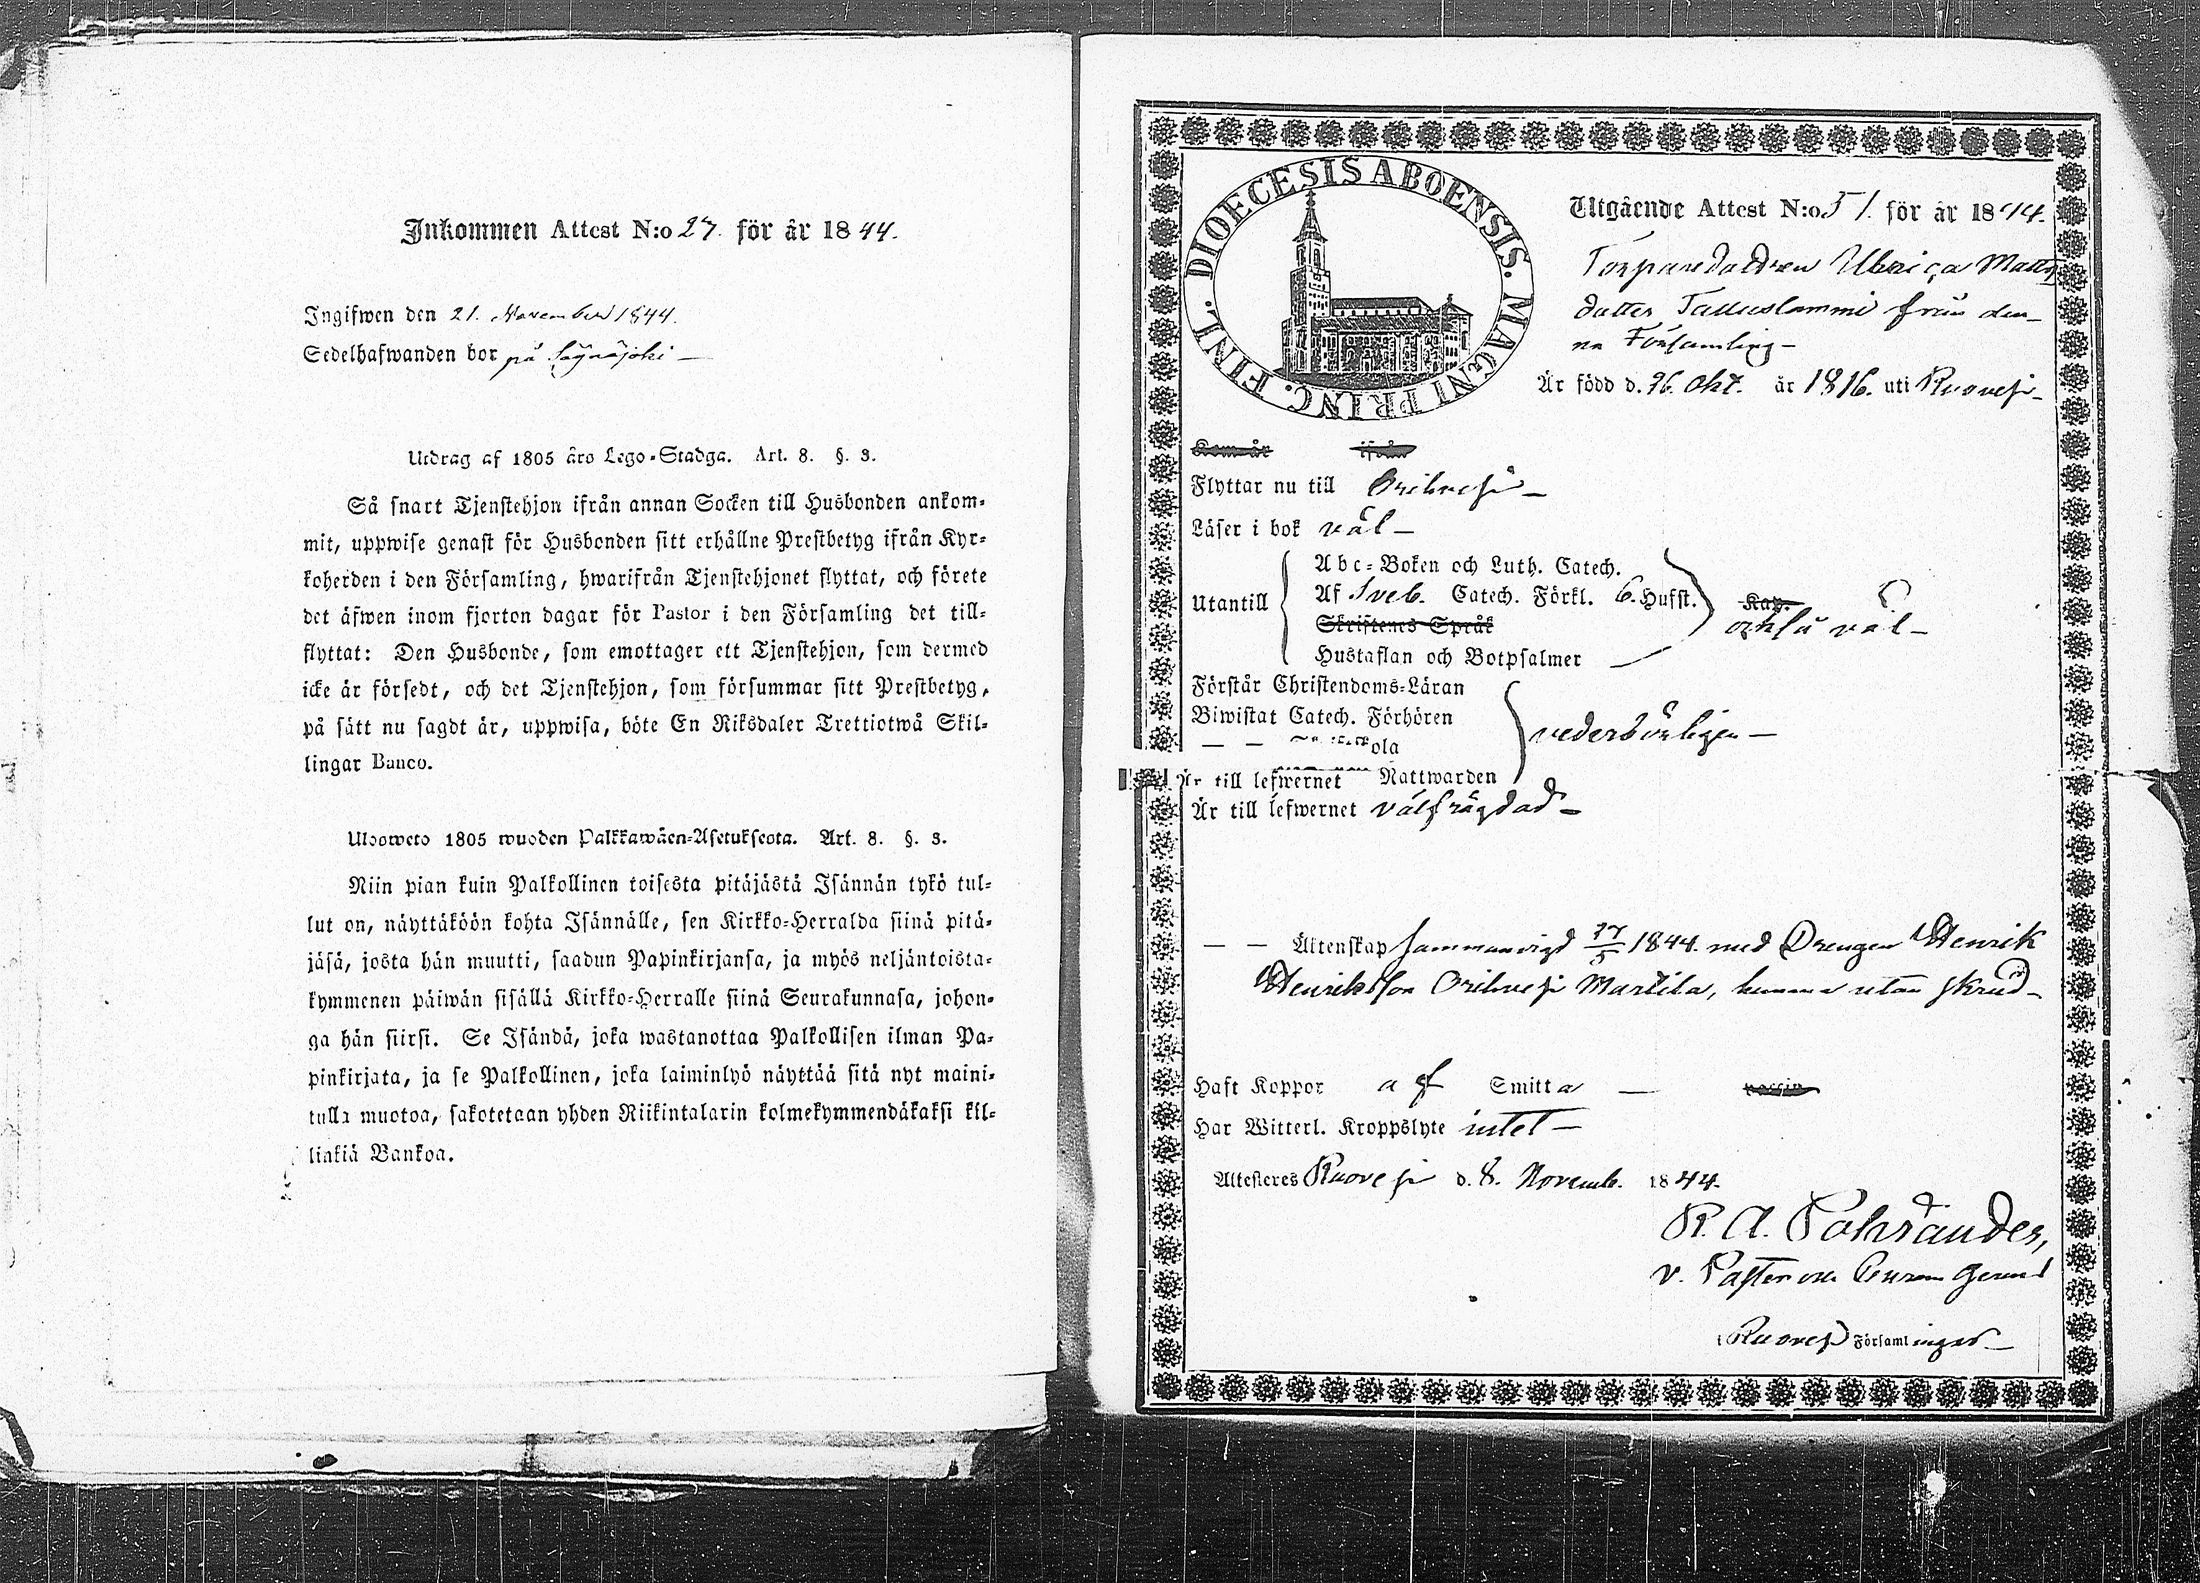 Inkommen Attest N:o 27. för år 1844.
Ingifwen den 21. November 1844.
Sedelhafwanden bor på
Utdrag af 1805 års Lego-Stadga. Art. 8. §. 3.
Så snart Tjenstehjon ifrån annan Socken till Husbonden ankom-
mit, uppwise genast för Husbonden sitt erhållne Prestbetyg ifrån Kyr-
koherden i den Församling, hwarifrån Tjenstehjonet flyttat, och förete
det äfwen inom fjorton dagar för Pastor i den Församling det till-
flyttat: Den Husbonde, som emottager ett Tjenstehjon, som dermed
icke är försedt, och det Tjenstehjon, som försummar sitt Prestbetyg,
på sätt nu sagdt är, uppwisa, böte En Riksdaler Trettiotwå Skil-
lingar Banco.
Ulosweto 1805 wuoden Palkkawäen-Asetuksesta. Art. 8. §. 3.
Niin pian kuin Palkollinen toisesta pitäjästä Isännän tykö tul-
lut on, näyttäköön kohta Isännälle, sen Kirkko-Herralda siinä pitä-
jäsä, josta hän muutti, saadun Papinkirjansa, ja myös neljäntoista-
kymmenen päiwän sisällä Kirkko-Herralle siinä Seurakunnasa, johon-
ga hän siirsi. Se Isändä, joka wastanottaa Palkollisen ilman Pa-
pinkirjata, ja se Palkollinen, joka laiminlyö näyttää sitä nyt maini-
tulla muotoa, sakotetaan yhden Riikintalarin kolmekymmendäkaksi kil-
linkiä Bankoa.
DIOECESIS ABOENSIS. MAGNI PRINC. FINL.
Utgående Attest N:o 51. för år 1844.
Torparedottren Ulrica Matts
dotter från den-
na Församling
Är född d. 26. Okt. år 1816. uti Ruovesi
Kom år ifrån
Flyttar nu till Orihvesi
Läser i bok väl
Utantill
Abc-Boken och Luth. Catech.
Af Sveb. Catech. Förkl. 6. Hufst.
Skriftenes Språk
Hustaflan och Botpsalmer
Kap.
också väl
Förstår Christendoms-Läran
Biwistat Catech. Förhören
ola
Nattwarden
vederbörligen
Är till lefwernet
Är till lefwernet välfrägdad
Äktenskap sammanvigd 1844. med Drengen Henrik
Henriksson Orihvesi Marttila, utan skrud
Haft Koppor af Smitta
Har Witterl. Kroppslyte intet
Attesteres Ruovesi d. 8. Novemb. 1844.
R. A.
v. Pastor
i Ruovesi Församlingar